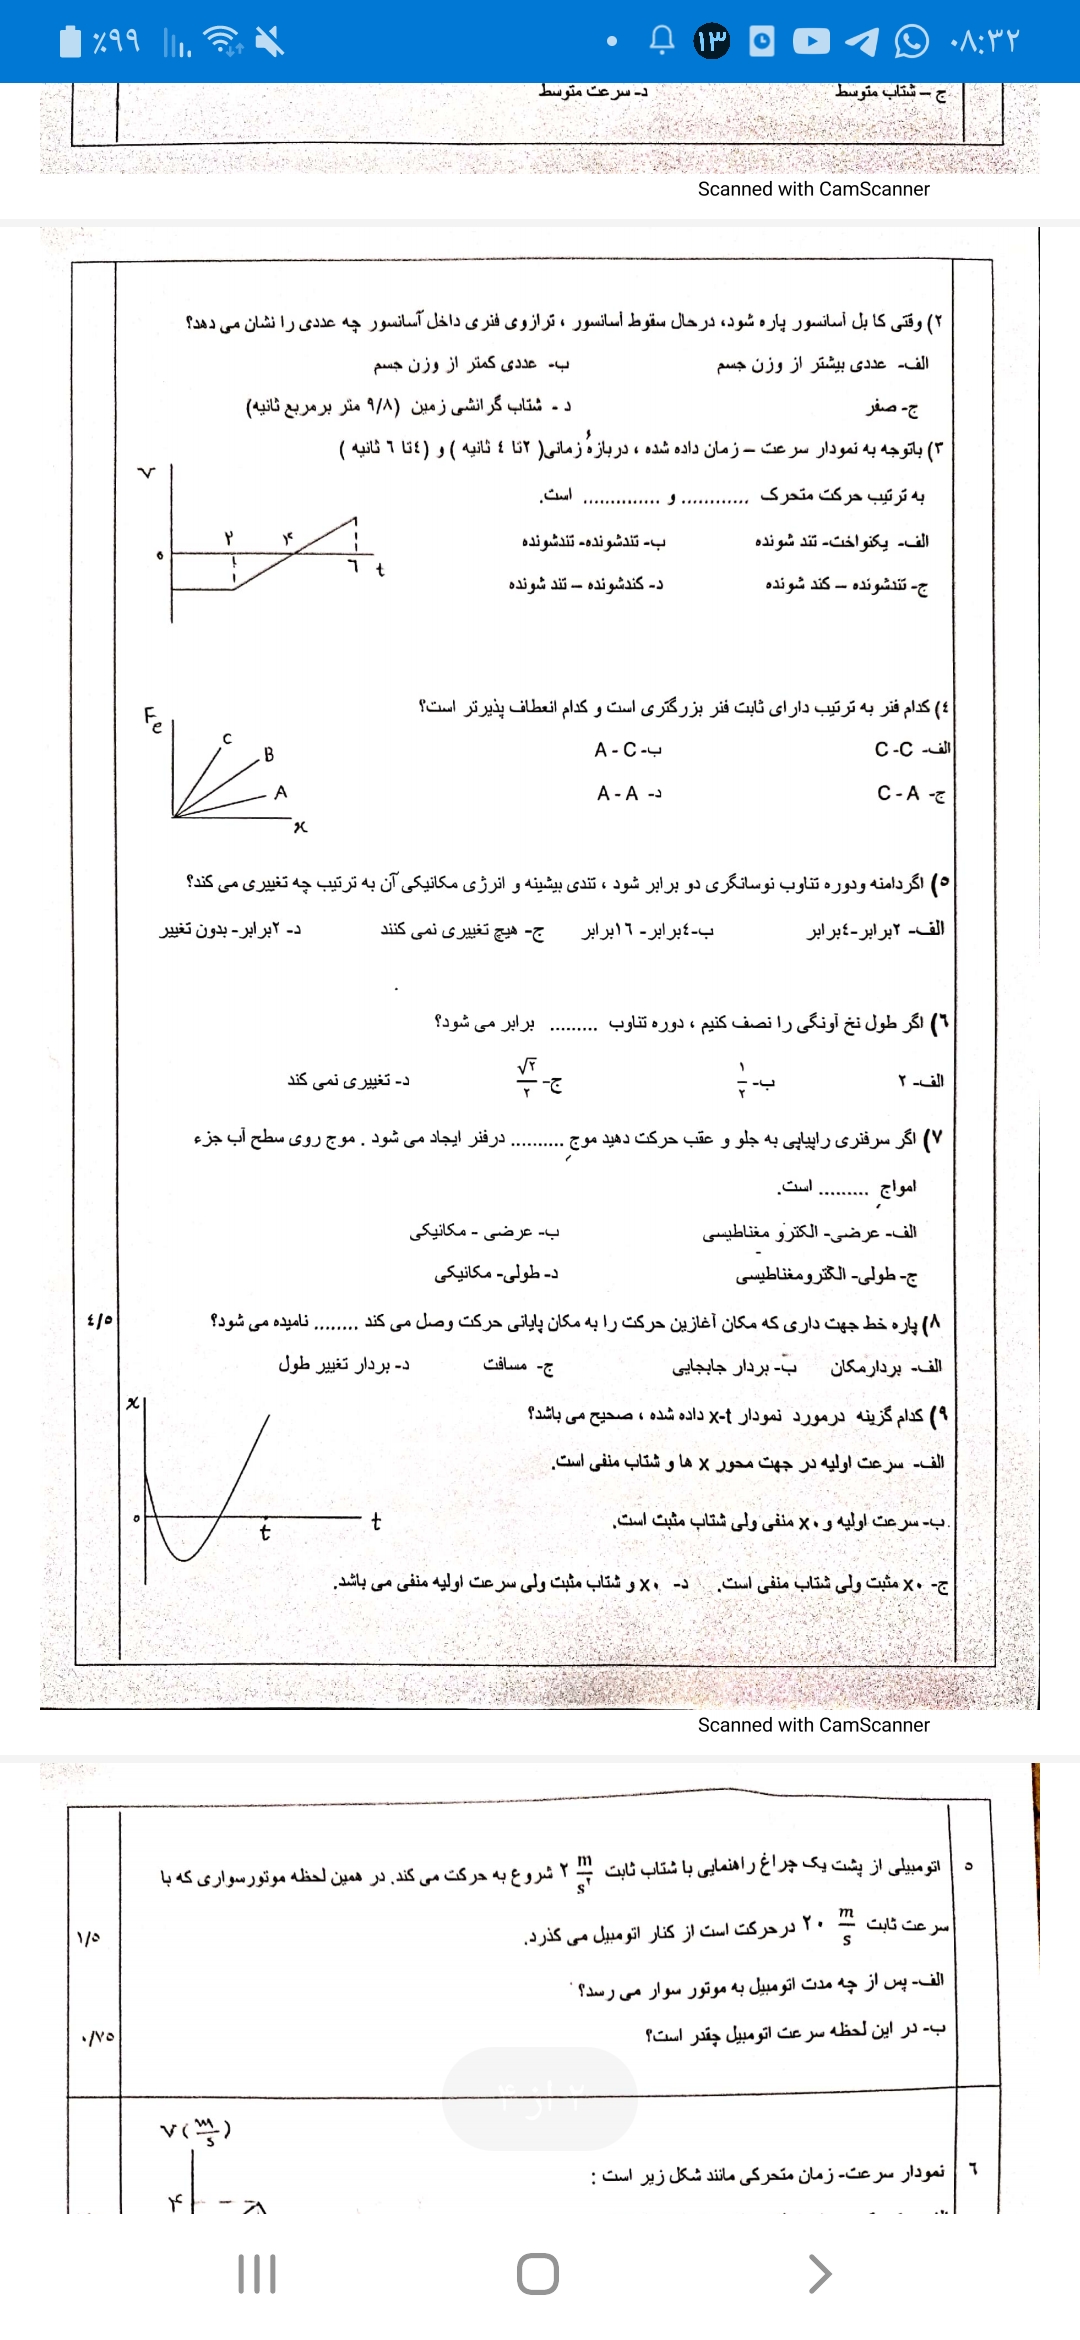 ٪۹۹ ۱۳ ۰۸:۳۲
ج – شتاب متوسط د- سرعت متوسط
Scanned with CamScanner
۲) وقتی کا بل آسانسور پاره شود، در حال سقوط آسانسور ، ترازوی فنری داخل آسانسور چه عددی را نشان می دهد؟
الف- عددی بیشتر از وزن جسم ب- عددی کمتر از وزن جسم
ج- صفر د - شتاب گرانشی زمین (۹/۸ متر بر مربع ثانیه)
۳) باتوجه به نمودار سرعت – زمان داده شده ، دربازهٔ زمانی( ۲تا ٤ ثانیه ) و (٤تا ٦ ثانیه )
به ترتیب حرکت متحرک ............ و .............. است.
الف- یکنواخت- تند شونده ب- تندشونده- تندشونده
ج- تندشونده – کند شونده د- کندشونده – تند شونده
v
۰ ۲ ۴ ٦ t
٤) کدام فنر به ترتیب دارای ثابت فنر بزرگتری است و کدام انعطاف پذیرتر است؟
الف- C -C ب- A - C
ج- C - A د- A - A
Fe
C
B
A
x
٥) اگردامنه ودوره تناوب نوسانگری دو برابر شود ، تندی بیشینه و انرژی مکانیکی آن به ترتیب چه تغییری می کند؟
الف- ۲برابر-٤برابر ب-٤برابر- ۱٦برابر ج- هیچ تغییری نمی کنند د- ۲برابر- بدون تغییر
٦) اگر طول نخ آونگی را نصف کنیم ، دوره تناوب ......... برابر می شود؟
الف- ۲ ب- ۱/۲ ج- √۲/۲ د- تغییری نمی کند
۷) اگر سرفنری راپیاپی به جلو و عقب حرکت دهید موج .......... درفنر ایجاد می شود . موج روی سطح آب جزء
امواج ......... است.
الف- عرضی- الکترو مغناطیسی ب- عرضی - مکانیکی
ج- طولی- الکترومغناطیسی د- طولی- مکانیکی
۸) پاره خط جهت داری که مکان آغازین حرکت را به مکان پایانی حرکت وصل می کند ........ نامیده می شود؟
٤/٥
الف- بردارمکان ب- بردار جابجایی ج- مسافت د- بردار تغییر طول
۹) کدام گزینه درمورد نمودار x-t داده شده ، صحیح می باشد؟
الف- سرعت اولیه در جهت محور x ها و شتاب منفی است.
ب- سرعت اولیه و x۰ منفی ولی شتاب مثبت است.
ج- x۰ مثبت ولی شتاب منفی است. د- x۰ و شتاب مثبت ولی سرعت اولیه منفی می باشد.
x
۰ t t
Scanned with CamScanner
٥ اتومبیلی از پشت یک چراغ راهنمایی با شتاب ثابت ۲ m/s۲ شروع به حرکت می کند. در همین لحظه موتورسواری که با
سرعت ثابت ۲۰ m/s درحرکت است از کنار اتومبیل می گذرد.
۱/٥
الف- پس از چه مدت اتومبیل به موتور سوار می رسد؟
ب- در این لحظه سرعت اتومبیل چقدر است؟
۰/۷٥
۲ از ۴
٦ نمودار سرعت- زمان متحرکی مانند شکل زیر است :
v(m/s)
۴